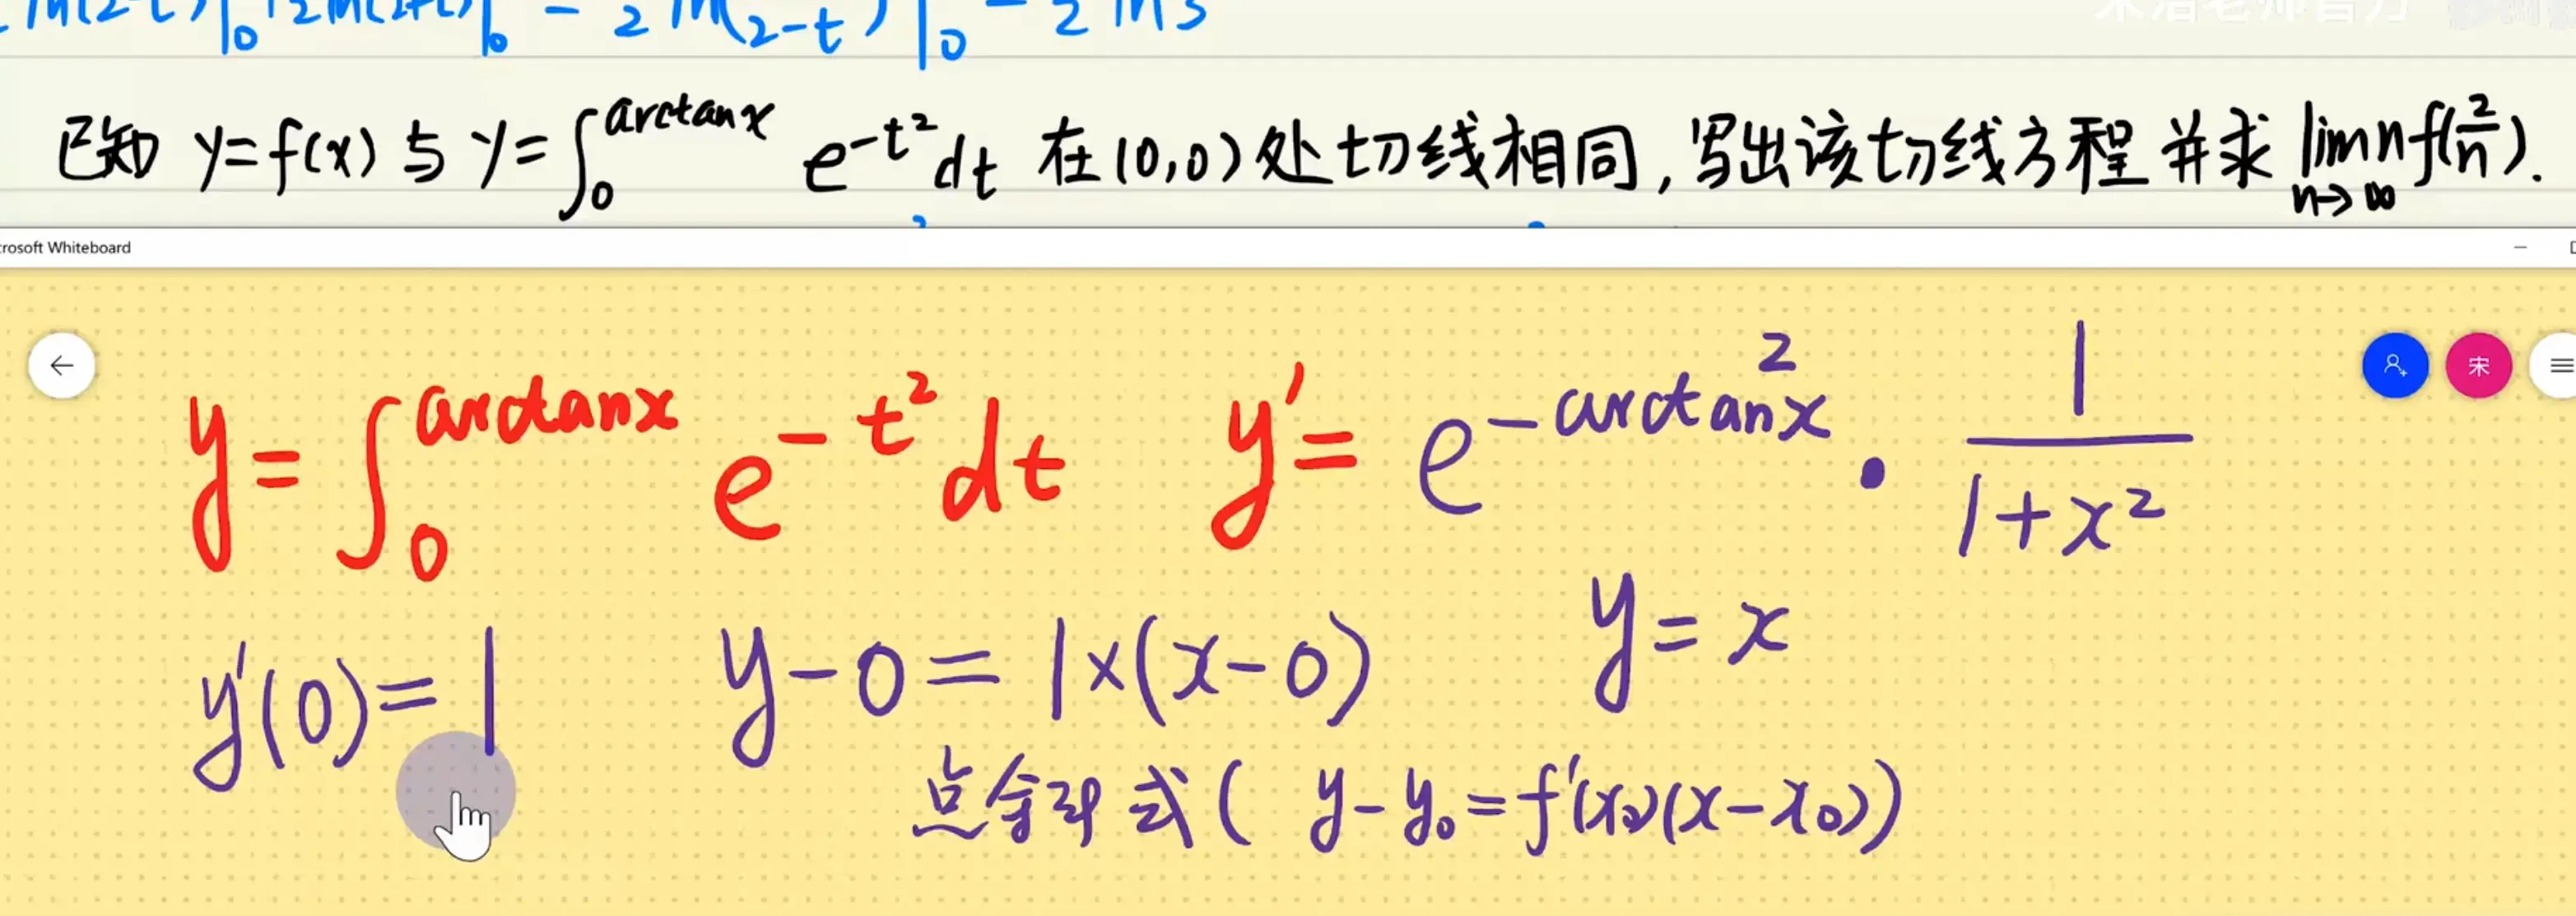 已知 y=f(x) 与 y=∫₀^{arctanx} e^{-t²}dt 在(0,0)处切线相同,写出该切线方程并求 lim_{n→∞} nf(2/n).
rosoft Whiteboard
y=∫₀^{arctanx} e^{-t²}dt y'= e^{-arctan²x} · 1/(1+x²)
宋
y'(0)=1 y-0=1×(x-0) y=x
点斜式( y-y₀=f'(x₀)(x-x₀))